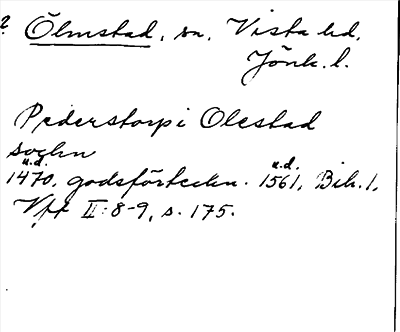 ? Ölmstad, sn, Vista hd.
Jönk. l.
Pederstorp i Olestad
soghn
u.d. u.d.
1470, godsförteckn. 1561, Bih. 1,
Vft II: 8-9, s. 175.